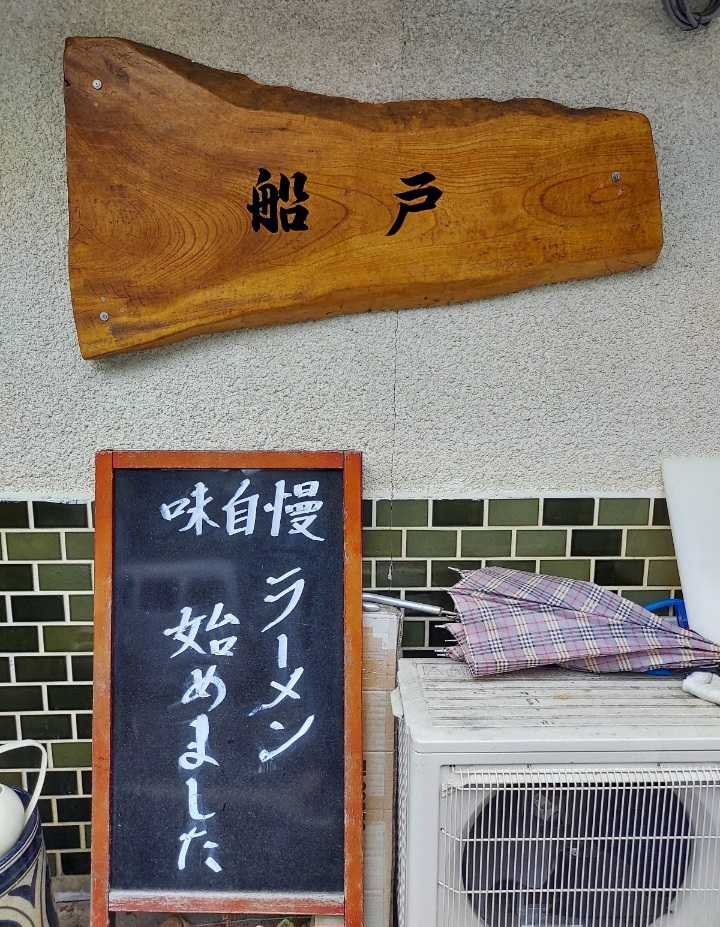 船戸
味自慢
ラーメン
始めました